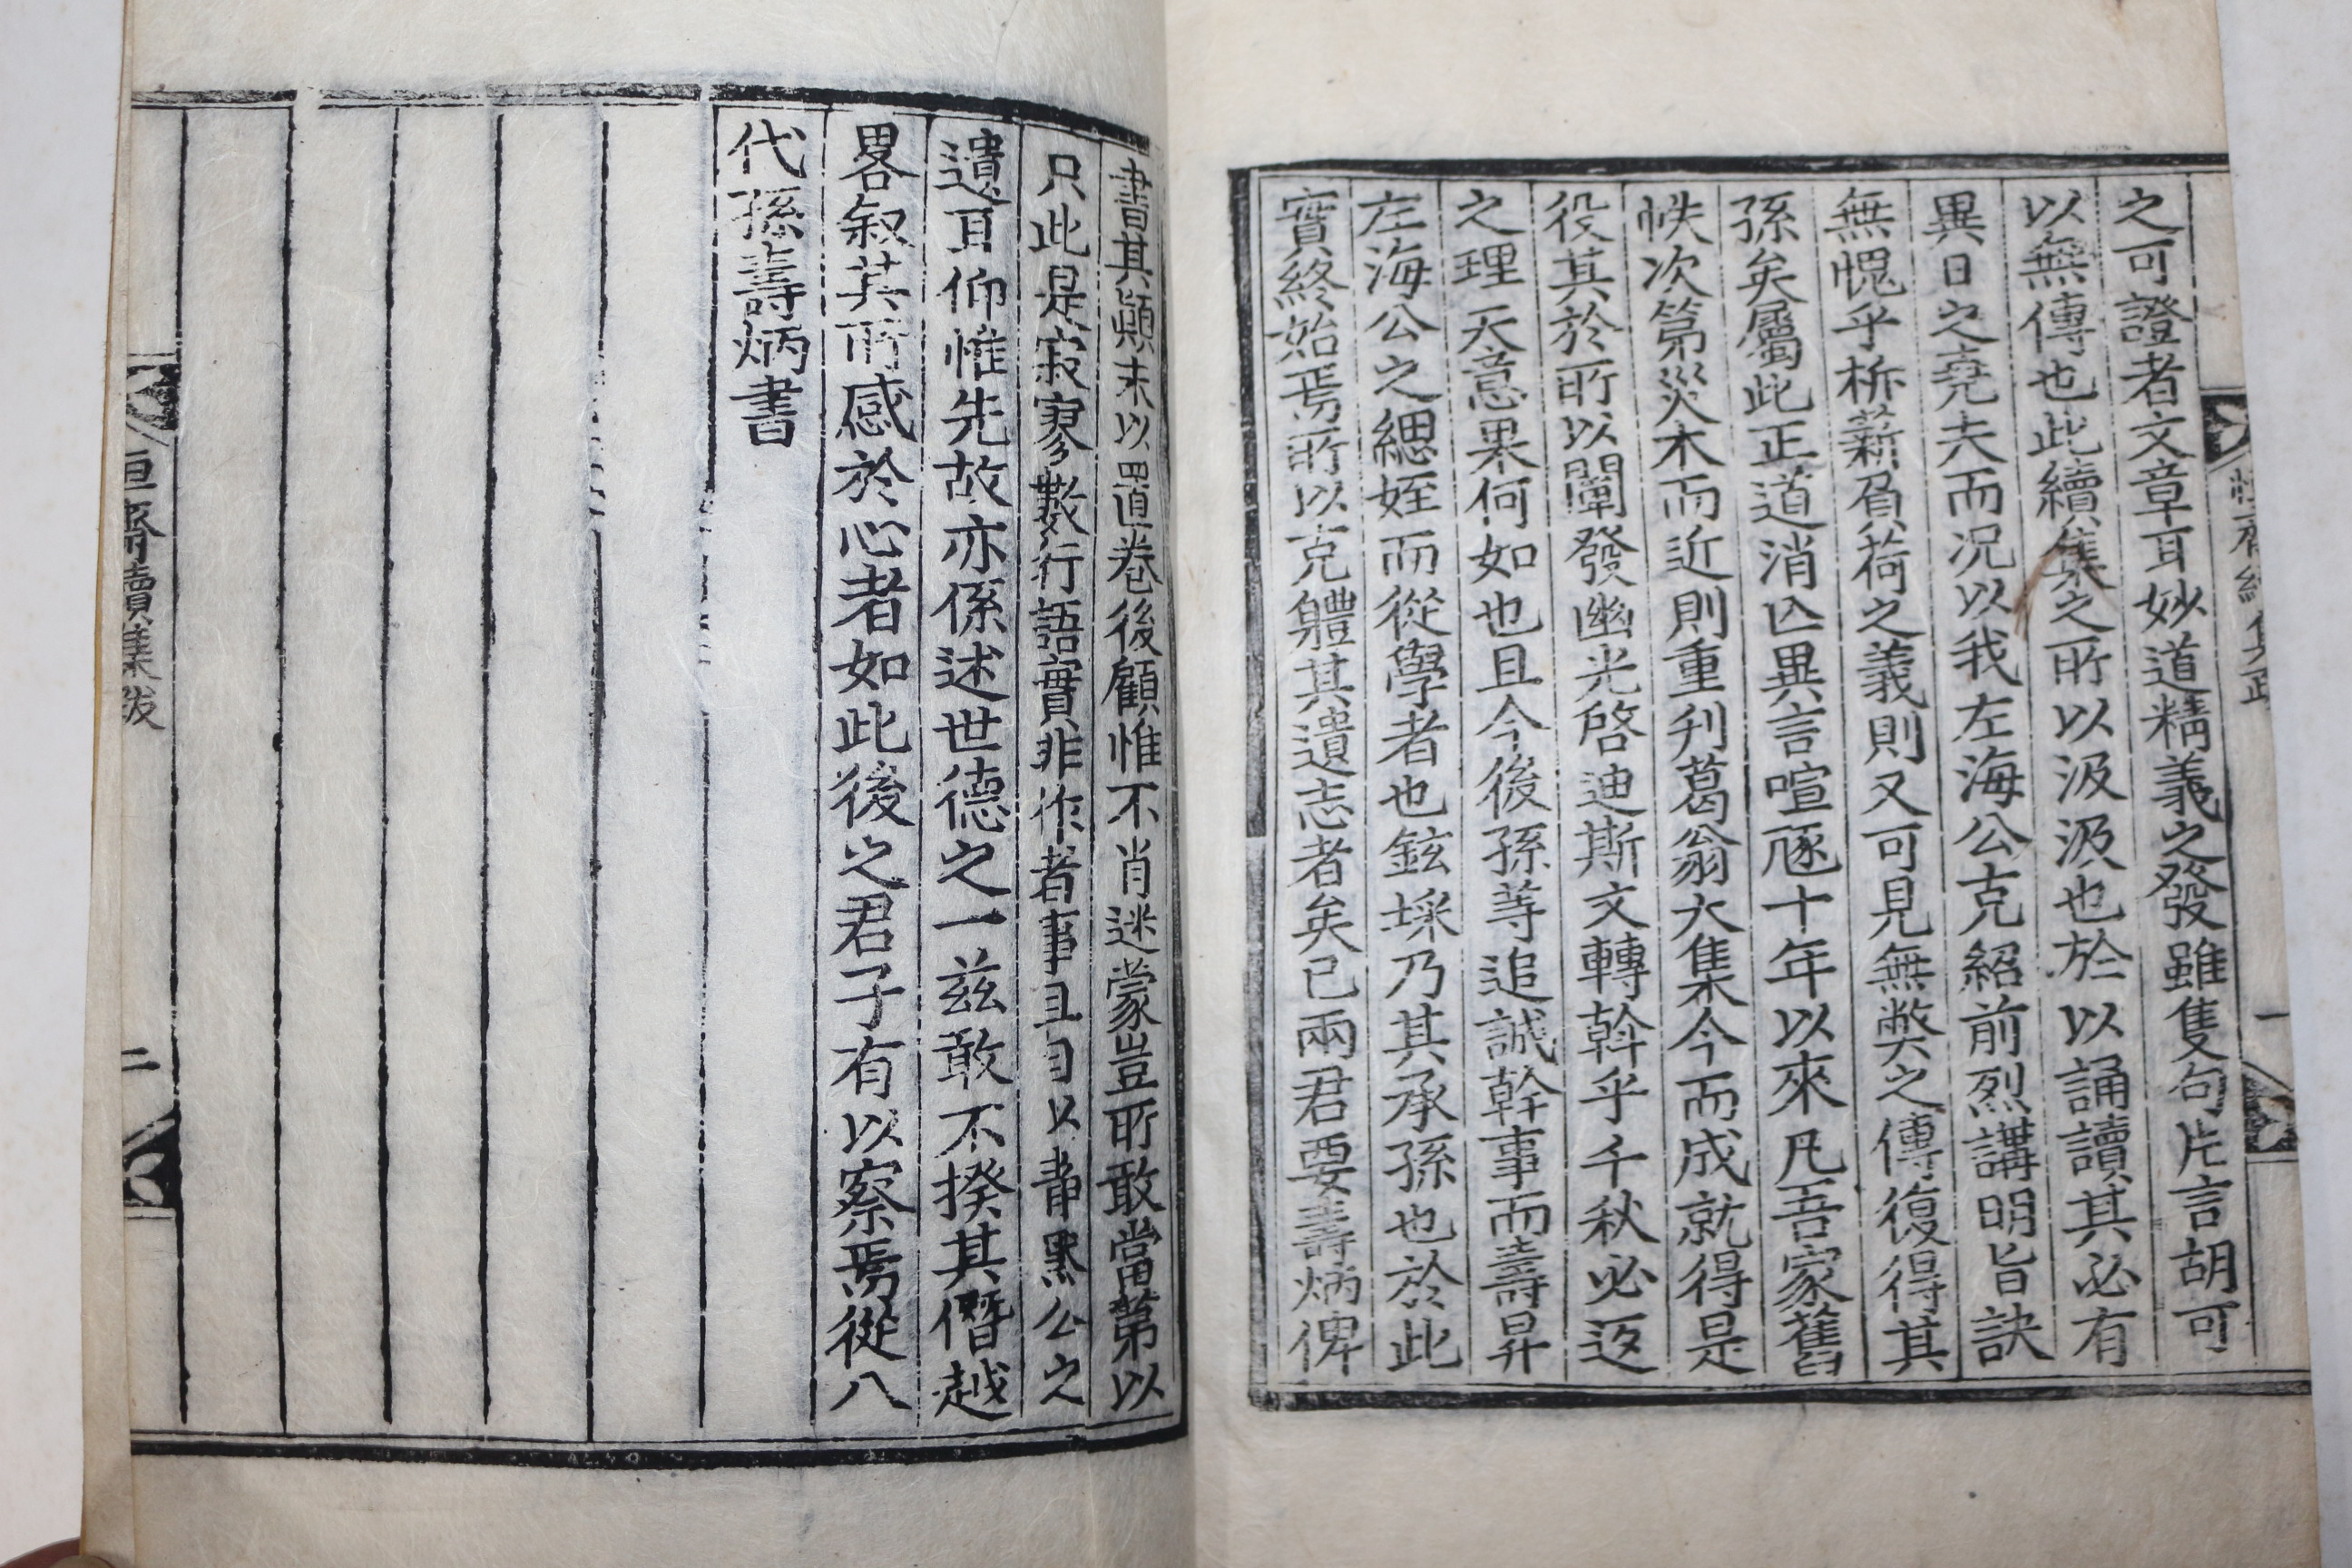 之可證者文章耳妙道精義之發雖隻句片言胡可
以無傳也此續集之所以汲汲也於以誦讀其必有
異日之堯夫而况以我左海公克紹前烈講明旨訣
無愧乎析薪負荷之義則又可見無獘之傳復得其
孫矣屬此正道消亾異言喧豗十年以來凡吾家舊
帙次第災木而近則重刋葛翁大集今而成就得是
役其於所以闡發幽光啓迪斯文轉斡乎千秋必返
之理天意果何如也且今後孫等追誠幹事而壽昇
左海公之緦姪而從學者也鉉埰乃其承孫也於此
實終始焉所以克軆其遺志者矣已兩君要壽炳俾
書其顚末以置卷後顧惟不肖迷蒙豈所敢當第以
只此是寂寥數行語實非作者事且自以靜黙公之
遺耳仰惟先故亦係述世德之一兹敢不揆其僭越
畧叙其所感於心者如此後之君子有以察焉從八
代孫壽炳書
齋續集跋
二